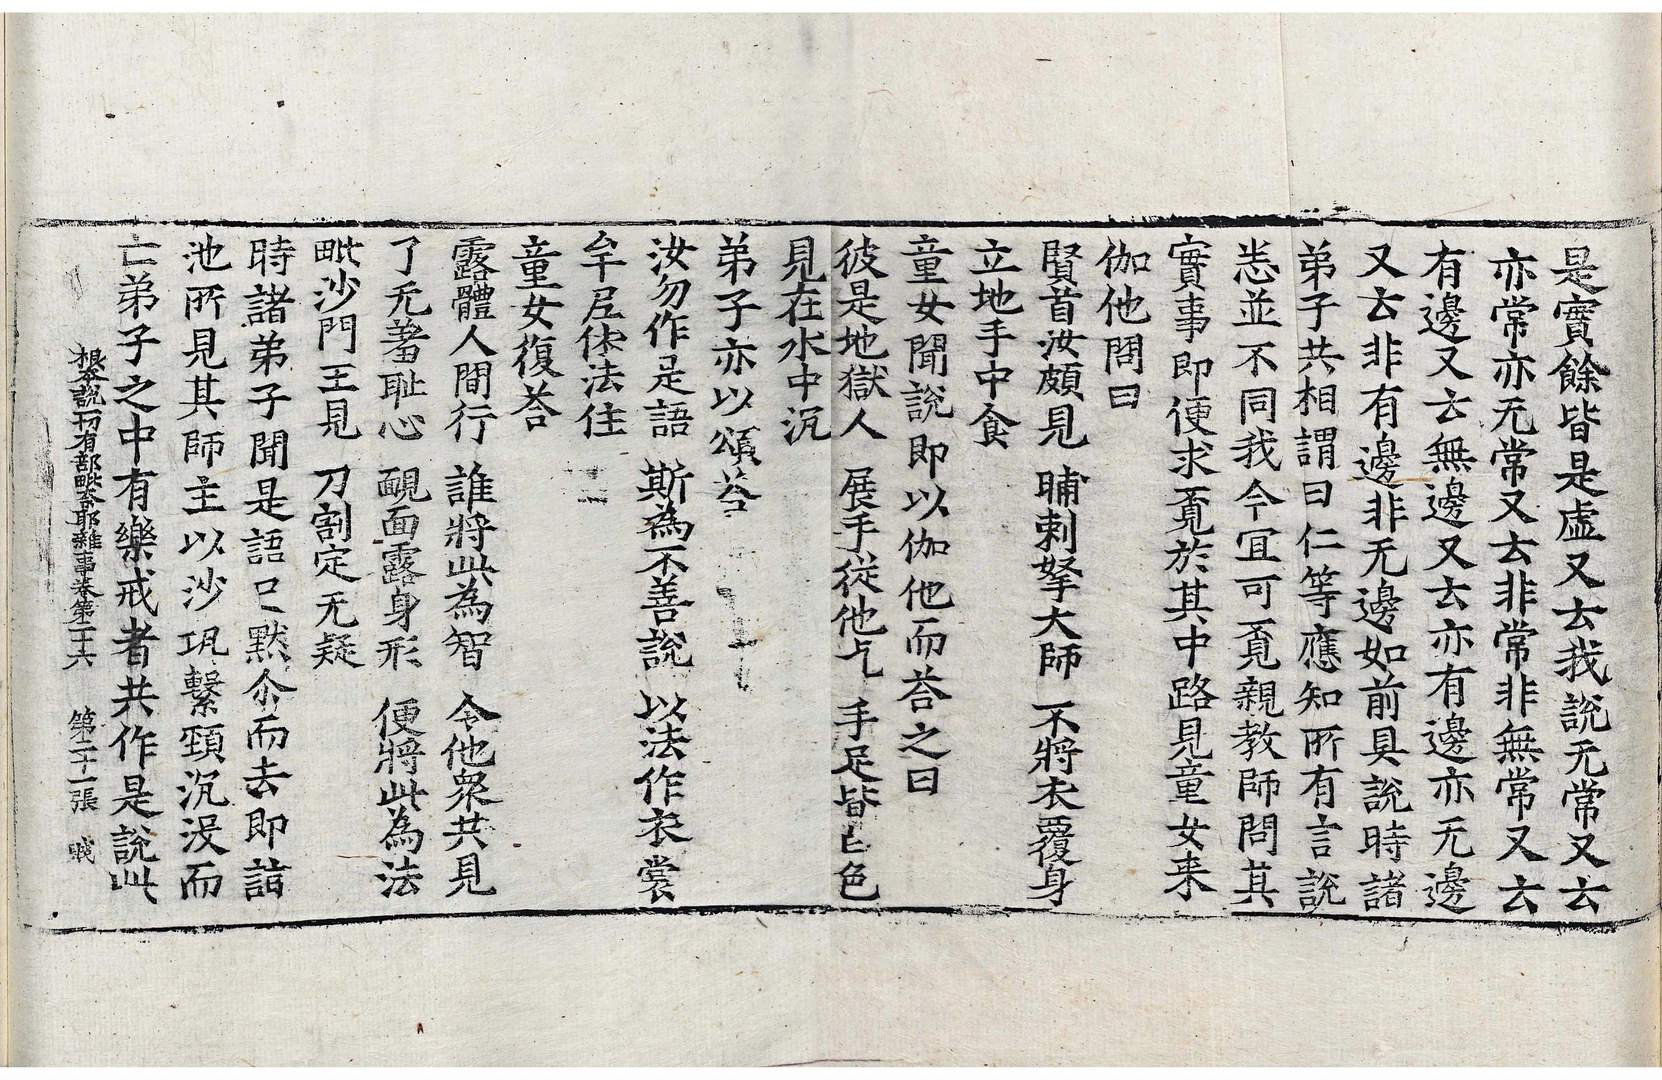 是實餘皆是虛又去我說无常又去
亦常亦无常又去非常非無常又去
有邊又去無邊又去亦有邊亦无邊
又去非有邊非无邊如前具說時諸
弟子共相謂曰仁等應知所有言說
恙並不同我今冝可覔親教師問其
實事即便求覔於其中路見童女来
伽他問曰
賢首汝頗見　晡剌拏大師　不將衣覆身
立地手中食
童女聞說即以伽他而荅之曰
彼是地獄人　展手從他乞　手足皆白色
見在水中沉
弟子亦以頌荅
汝勿作是語　斯為不善說　以法作衣裳
牟尼依法住
童女復荅
露體人間行　誰將此為智　令他衆共見
了无羞耻心　靦面露身形　便將此為法
毗沙門王見　刀割定无疑
時諸弟子聞是語已默尒而去即詣
池所見其師主以沙瓨繫頸沉没而
亡弟子之中有樂戒者共作是說此
根本說一切有部毗奈耶雜事卷第三十六　第二十一張